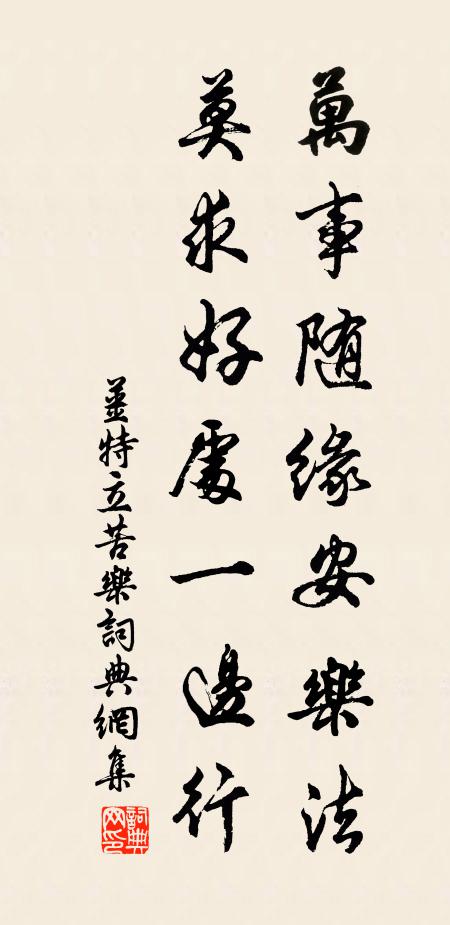 萬事随緣安樂法
莫求好處一邊行
姜特立苦樂詞典網集
詞典網印